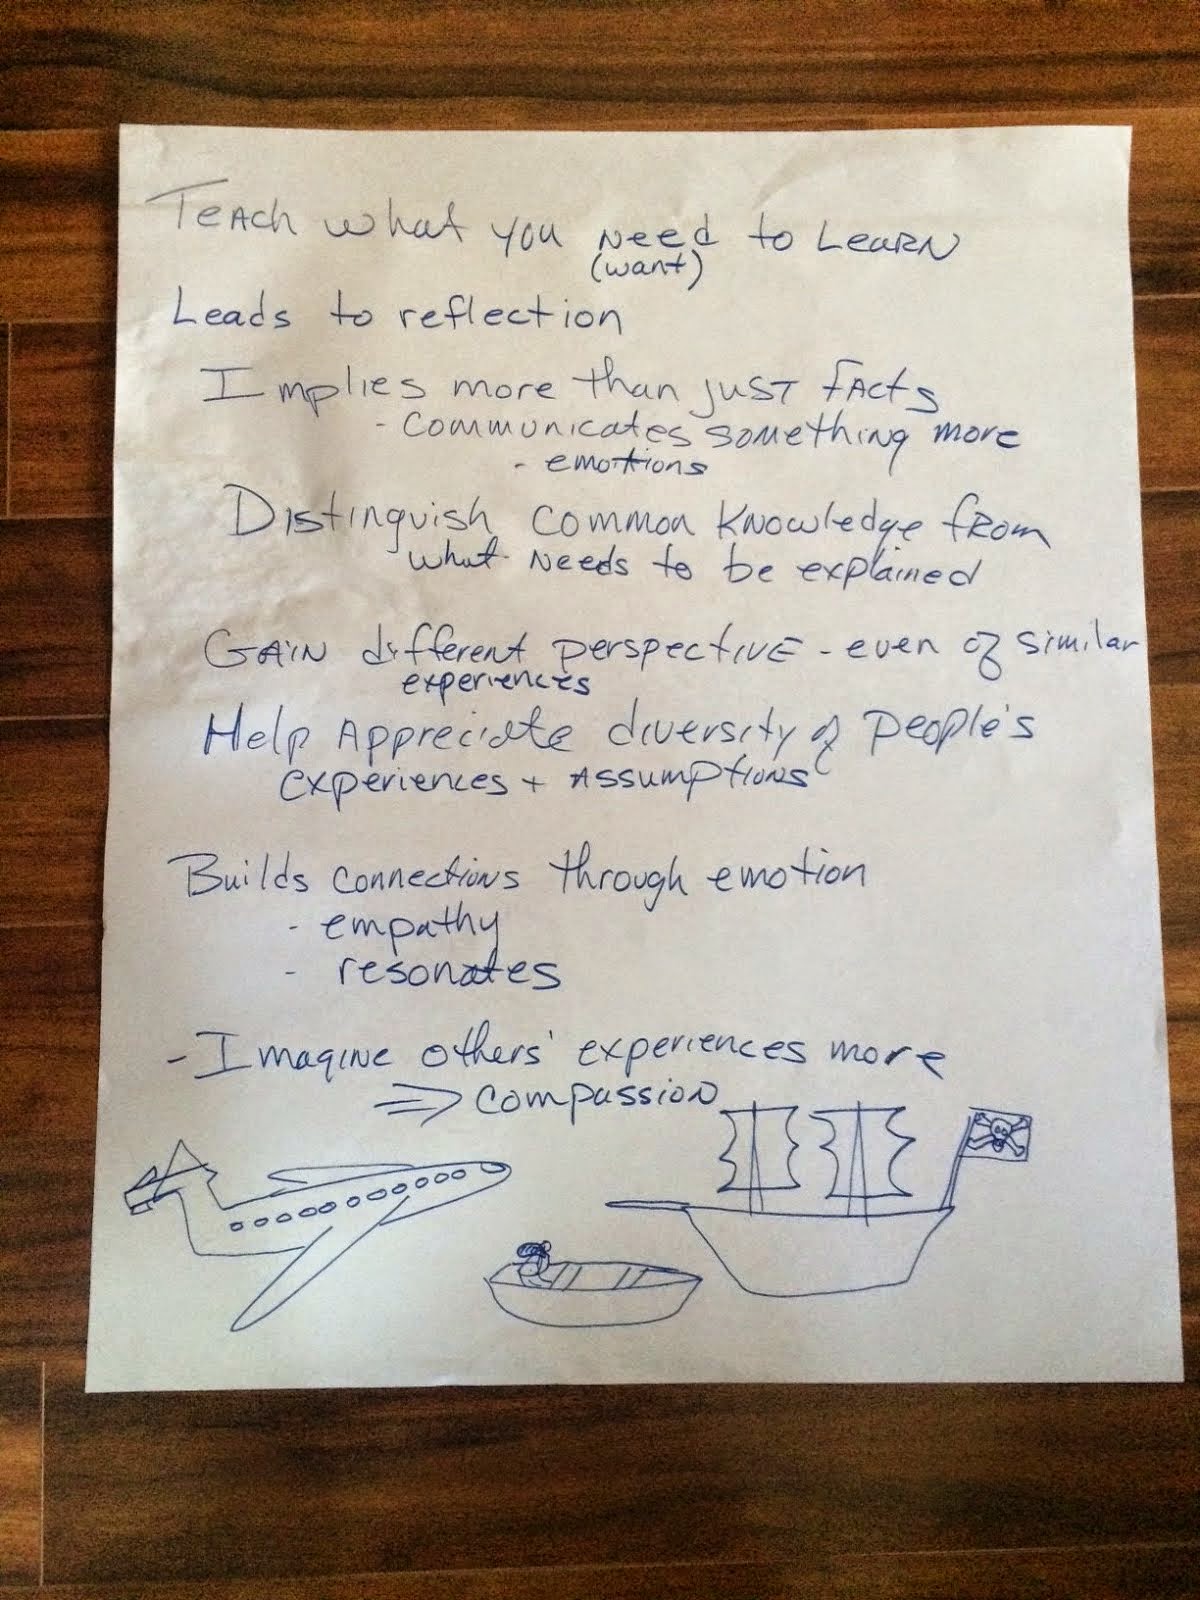 Teach what you need to Learn
(want)
Leads to reflection
Implies more than just facts
- communicates something more
- emotions
Distinguish common knowledge from
what needs to be explained
Gain different perspective - even of similar
experiences
Help Appreciate diversity of people's
experiences + Assumptions
Builds connections through emotion
- empathy
- resonates
- Imagine others' experiences more
⇒ compassion